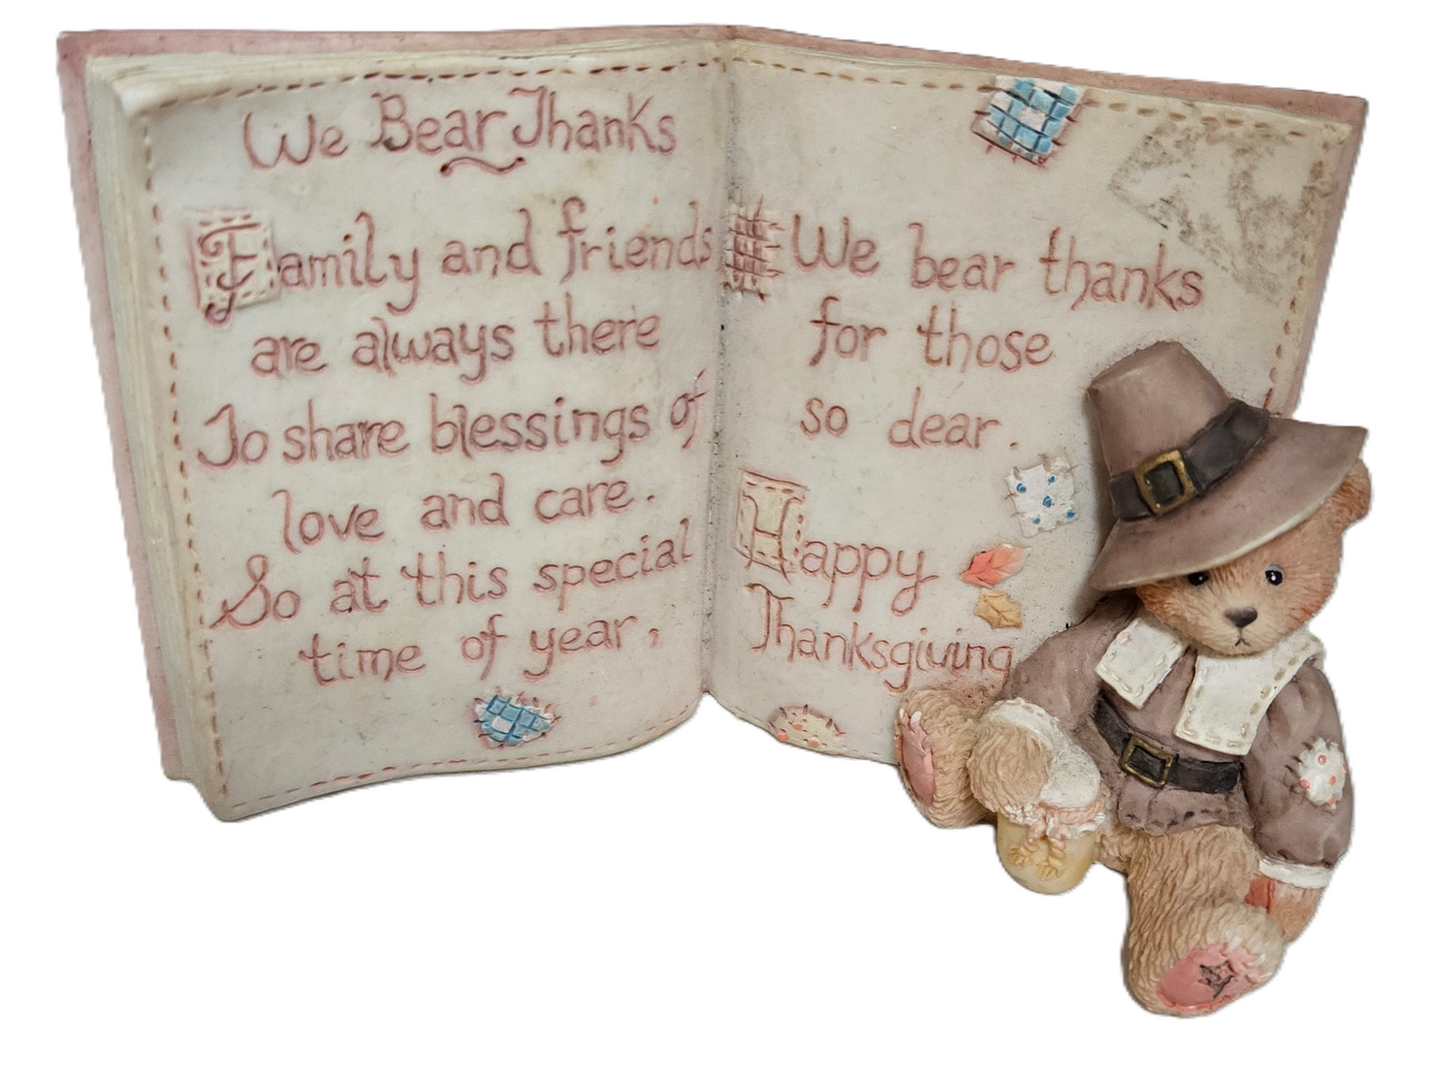 We Bear Thanks
Family and friends
are always there
To share blessings of
love and care.
So at this special
time of year,
We bear thanks
for those
so dear.
Happy
Thanksgiving